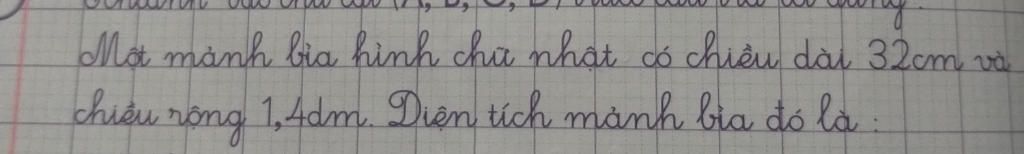 Một mảnh bìa hình chữ nhật có chiều dài 32cm và
chiều rộng 1,4dm. Diện tích mảnh bìa đó là: